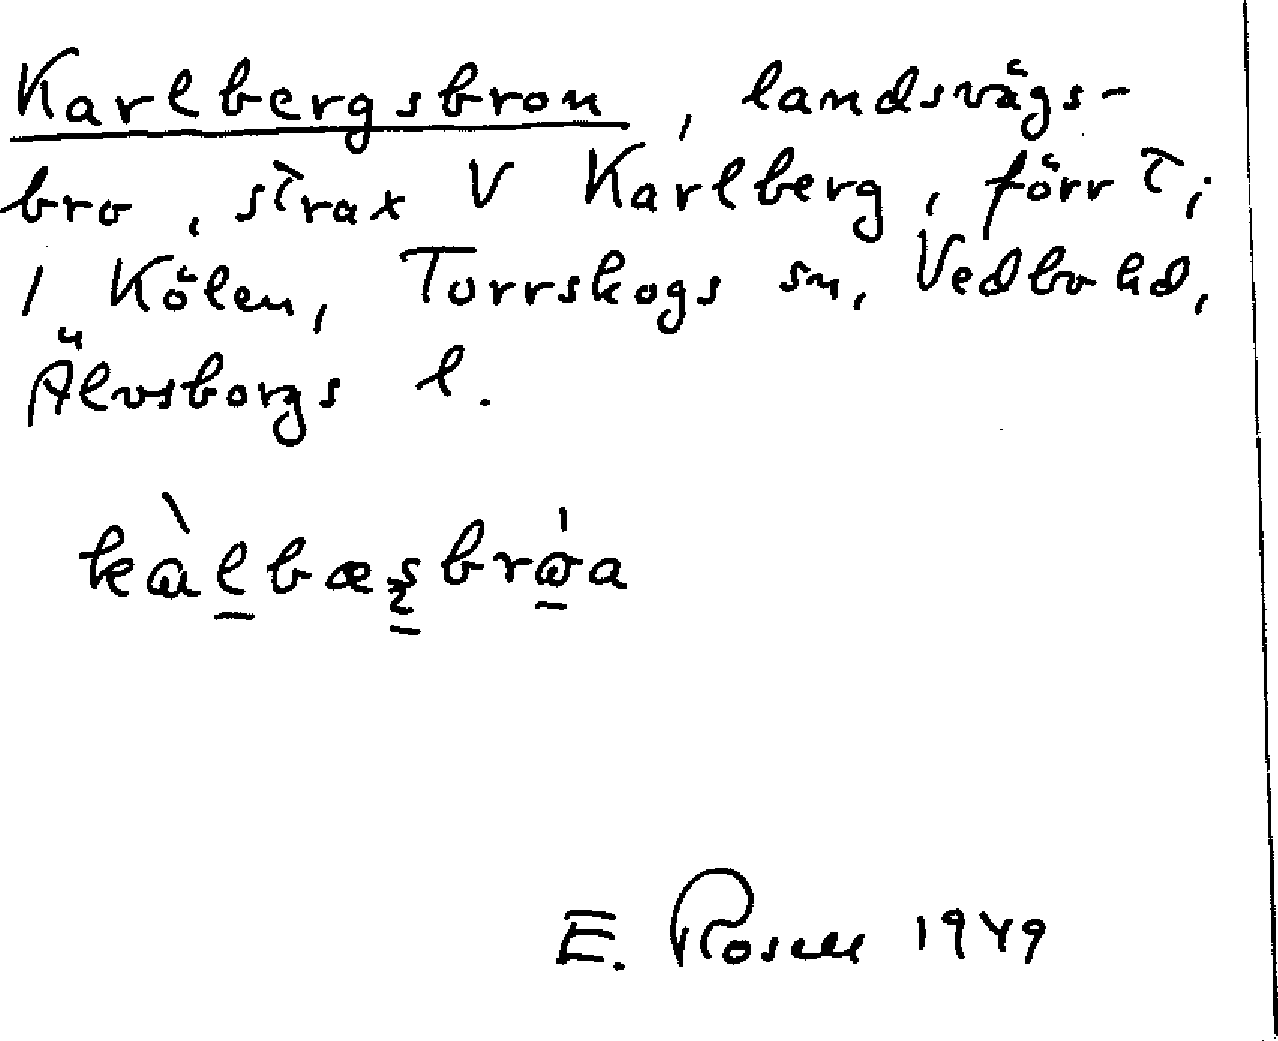 Karlbergsbron, landsvägs-
bro, strax V Karlberg, förr T;
1 Kölen, Torrskogs sn, Vedbo hd,
Älvsborgs l.
E. Rosell 1949